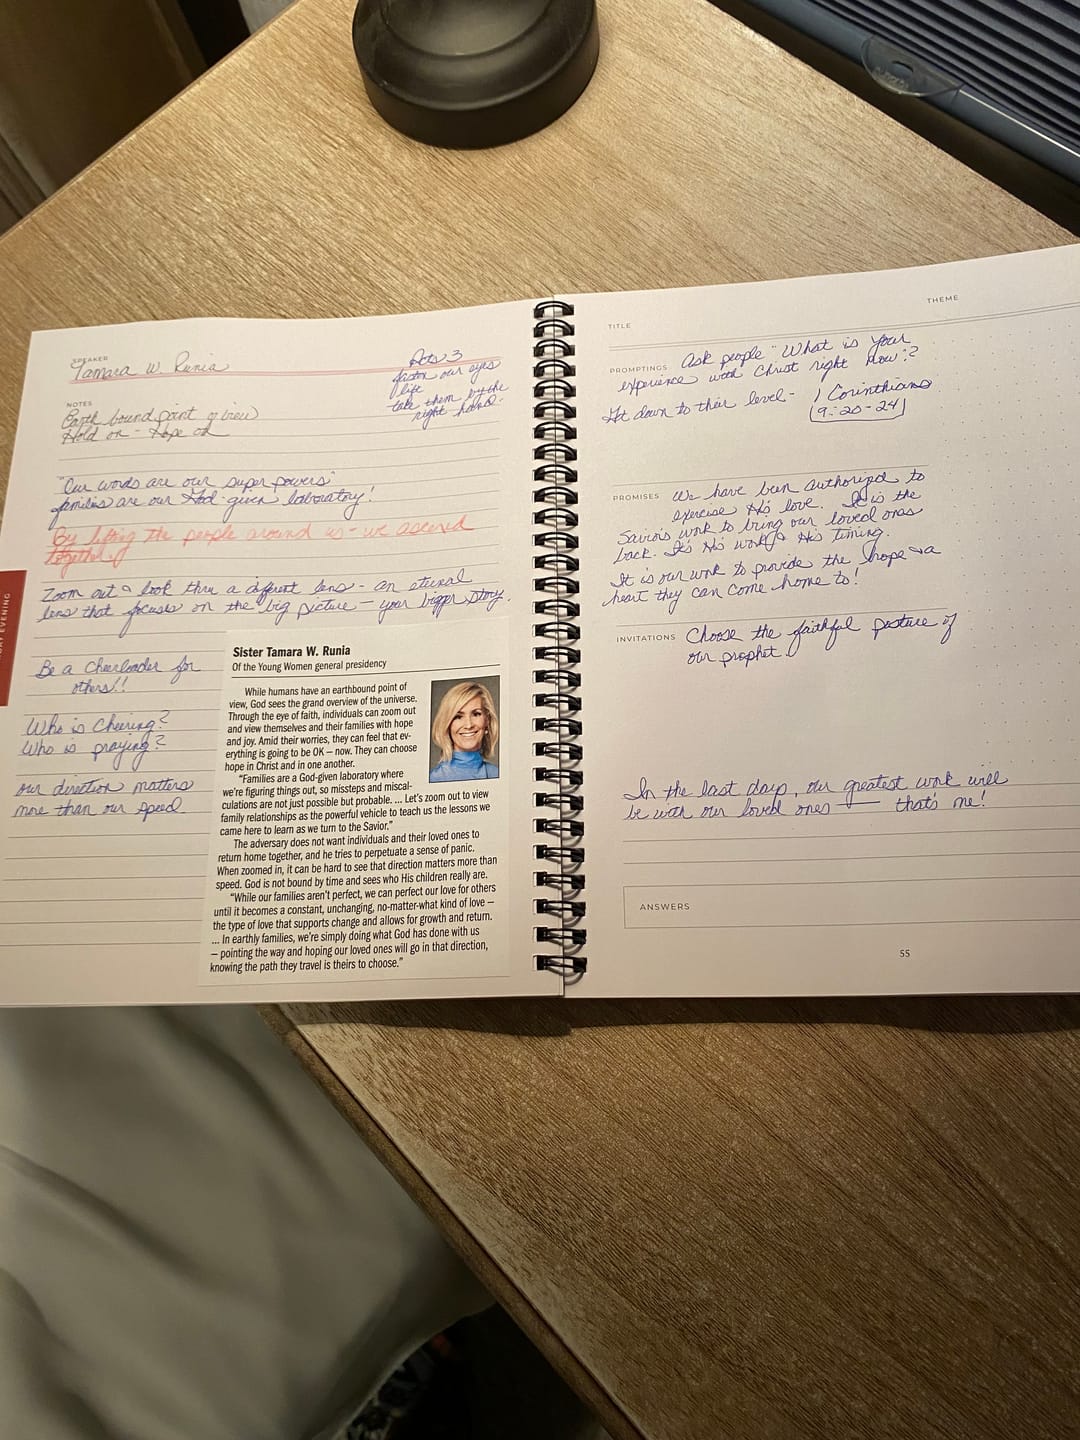 SPEAKER
Tamara W. Runia
Acts 3
fasten our eyes
life
take them by the
right hand.
NOTES
Earth bound point of view
Hold on - Hope on
"Our words are our super powers"
families are our God-given laboratory!
By lifting the people around us - we ascend
together.
Zoom out & look thru a different lens - an eternal
lens that focuses on the big picture - your bigger story.
Be a cheerleader for
others!!
Who is cheering?
Who is praying?
our direction matters
more than our speed
EVENING
Sister Tamara W. Runia
Of the Young Women general presidency
While humans have an earthbound point of
view, God sees the grand overview of the universe.
Through the eye of faith, individuals can zoom out
and view themselves and their families with hope
and joy. Amid their worries, they can feel that ev-
erything is going to be OK — now. They can choose
hope in Christ and in one another.
"Families are a God-given laboratory where
we're figuring things out, so missteps and miscal-
culations are not just possible but probable. ... Let's zoom out to view
family relationships as the powerful vehicle to teach us the lessons we
came here to learn as we turn to the Savior."
The adversary does not want individuals and their loved ones to
return home together, and he tries to perpetuate a sense of panic.
When zoomed in, it can be hard to see that direction matters more than
speed. God is not bound by time and sees who His children really are.
"While our families aren't perfect, we can perfect our love for others
until it becomes a constant, unchanging, no-matter-what kind of love —
the type of love that supports change and allows for growth and return.
... In earthly families, we're simply doing what God has done with us
— pointing the way and hoping our loved ones will go in that direction,
knowing the path they travel is theirs to choose."
TITLE
THEME
PROMPTINGS Ask people "What is your
experience with Christ right now"?
Get down to their level - 1 Corinthians
9:20-24
PROMISES We have been authorized to
exercise His love. It is the
Savior's work to bring our loved ones
back. It's His work & His timing.
It is our work to provide the hope & a
heart they can come home to!
INVITATIONS Choose the faithful posture of
our prophet.
In the last days, our greatest work will
be with our loved ones — that's me!
ANSWERS
55